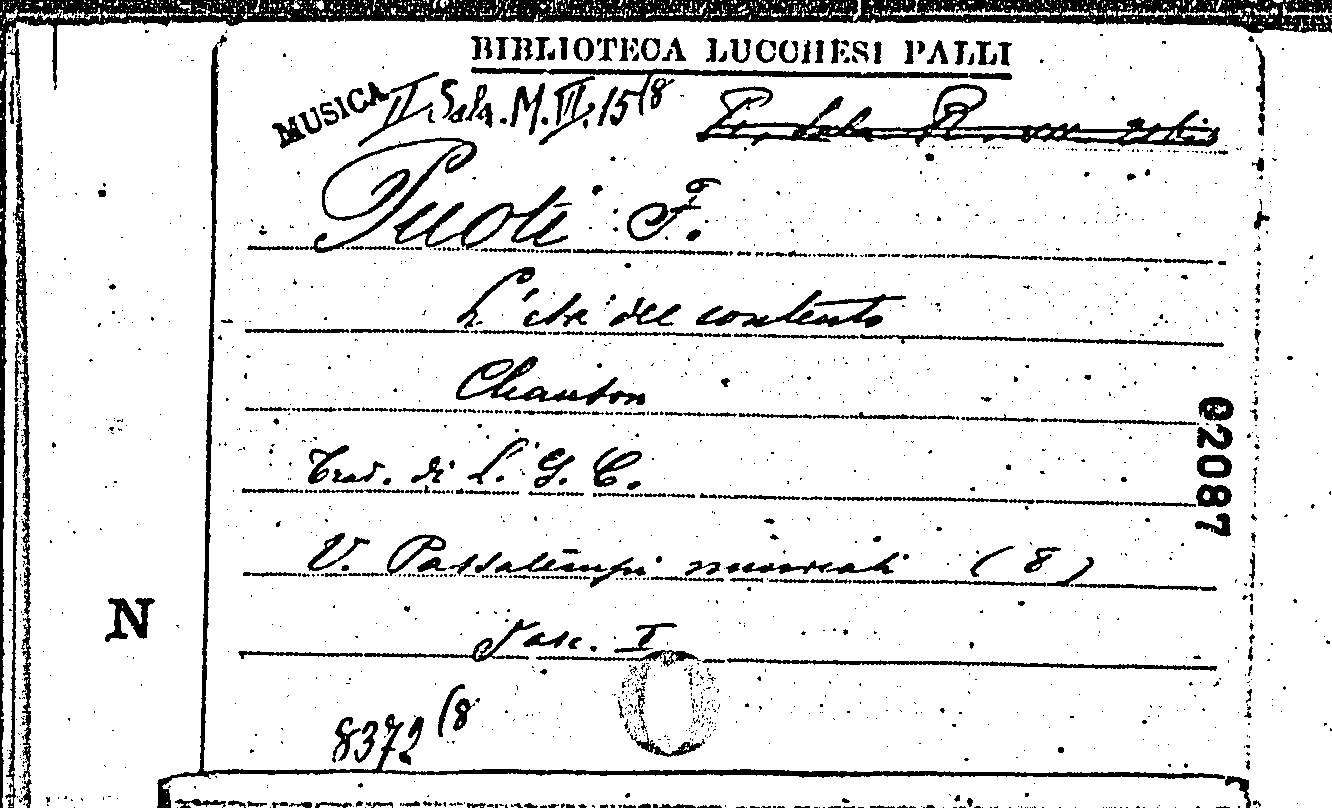 BIBLIOTECA LUCCHESI PALLI
MUSICA II. Sala. M. VII. 15(8
Puoti F.
L'età del contento
Chanson
Trad. di L. G. C.
V. Passatempi musicali (8)
Fasc. I
8372(8
02087
N